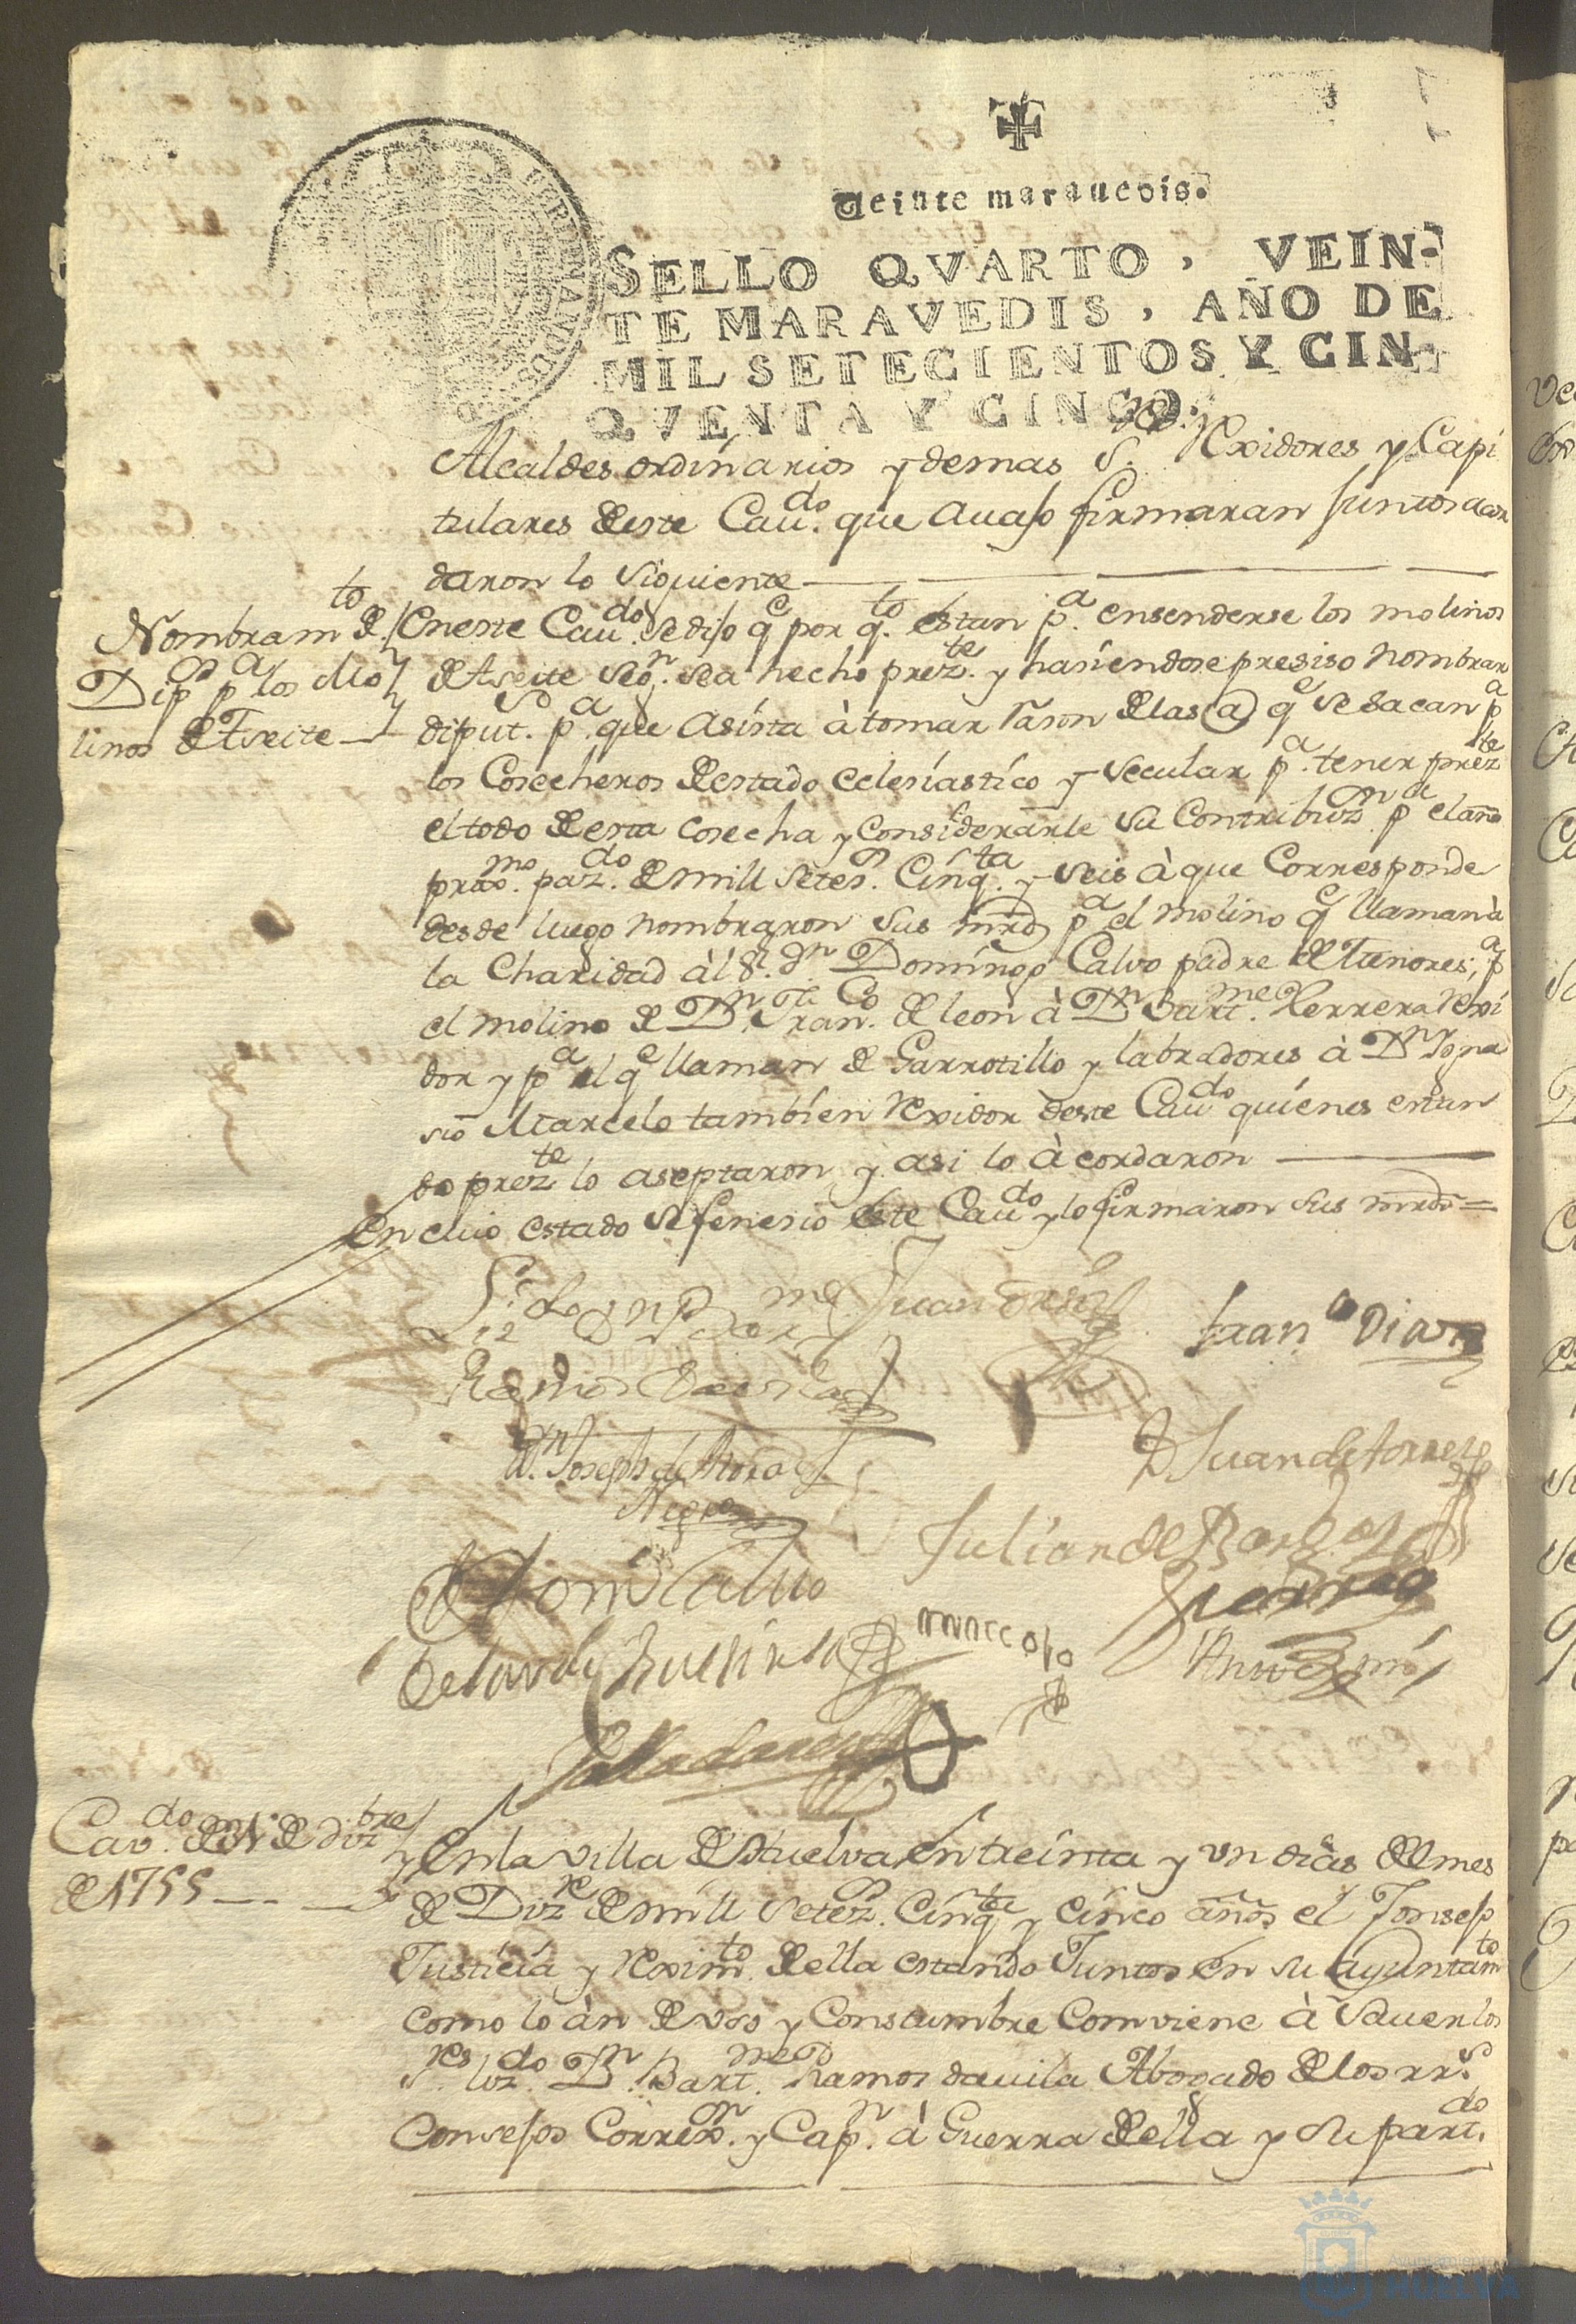 Veinte maravedis.
SELLO QVARTO, VEIN-
TE MARAVEDIS, AÑO DE
MIL SETECIENTOS Y CIN-
QVENTA Y CINCO.
Alcaldes ordinarios y demas S.res Rexidores y Capi
tulares deeste Cau.do que avajo firmaran juntos acor
daron lo siguiente
Nombram.to de
Dip.do p.a los Mo
linos de Aseite
Eneste Cau.do se dijo q.e por q.to estan p.a ensenderse los molinos
de Aseite seg.n sea hecho prez.te y hasiendose presiso nombrar
diput.do p.a que asista à tomar rason de las @ q.e se sacan p.a
los Cosecheros deestado eclesiastico y secular p.a tener prez.te
el todo deesta cosecha y considerarle su Contribuz.n p.a el año
prox.mo paz.do de mill setes.s Cinq.ta y seis à que Corresponde
desde luego nombraron sus mrds p.a el molino q.e llaman à
la Charidad àl S.r D.n Domingo Calvo padre de Menores, p.a
el molino de D.n Fran.co de leon à D.n Bart.me Herrera Rexi
dor y p.a el q.e llaman de Garrotillo y labradores à D.n Igna
sio Marcelo tambien Rexidor deste Cau.do quienes estan
do prez.te lo aseptaron y asi lo àcordaron
En cuio estado se fenesio este Cau.do y lo firmaron sus mrds =
Liz.do D.n Bar.me
Ramos Davila
Juan
Fran.co Diaz
D.n Joseph de Mora
Negro
D Juan de torres
Dom.o Calvo
Julian de
Herrera
Marcelo
Valladares
Cav.do de 31 de diz.bre
de 1755
En la villa de Huelva en treinta y un dias del mes
de Diz.re de mill setez.s Cinq.ta y cinco años el Consejo
Justicia y Rexim.to de ella estando Juntos en su ayuntam.to
como lo àn de vso y Constumbre Comviene à saver los
S.res liz.do D.n Bart.me Ramos davila Abogado de los rr.s
Consejos Correx.r y Cap.n à Guerra de ella y su part.do
Ayuntamiento de
HUELVA